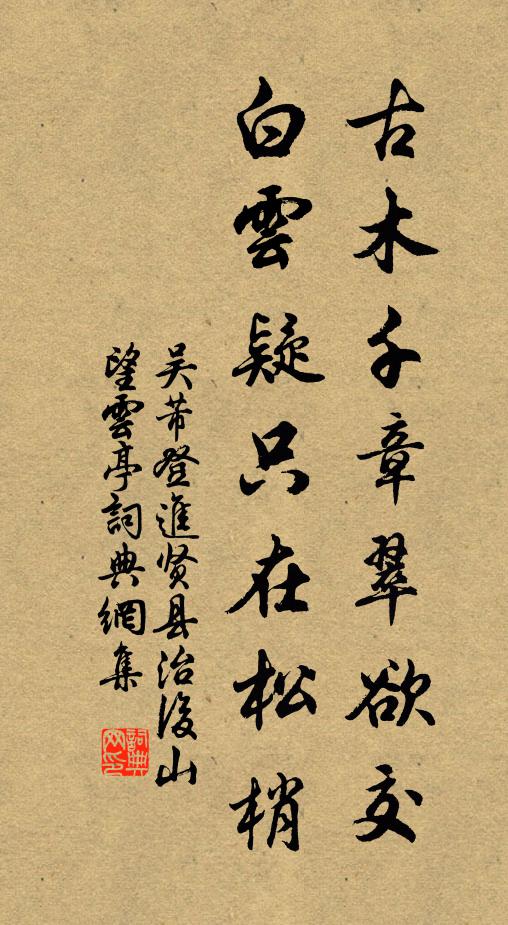 古木千章翠欲交
白雲疑只在松梢
吴芾登進贤县治後山
望雲亭詞典網集
詞典網印